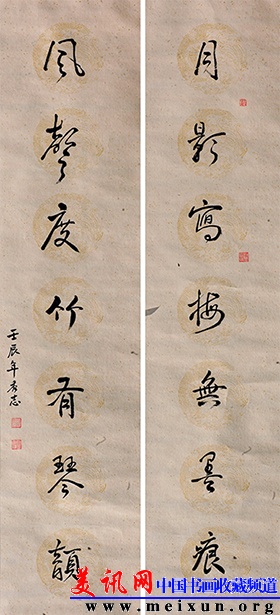 月影寫梅無墨痕
風聲度竹有琴韻
壬辰年
美讯网 中国书画收藏频道
www.meixun.org